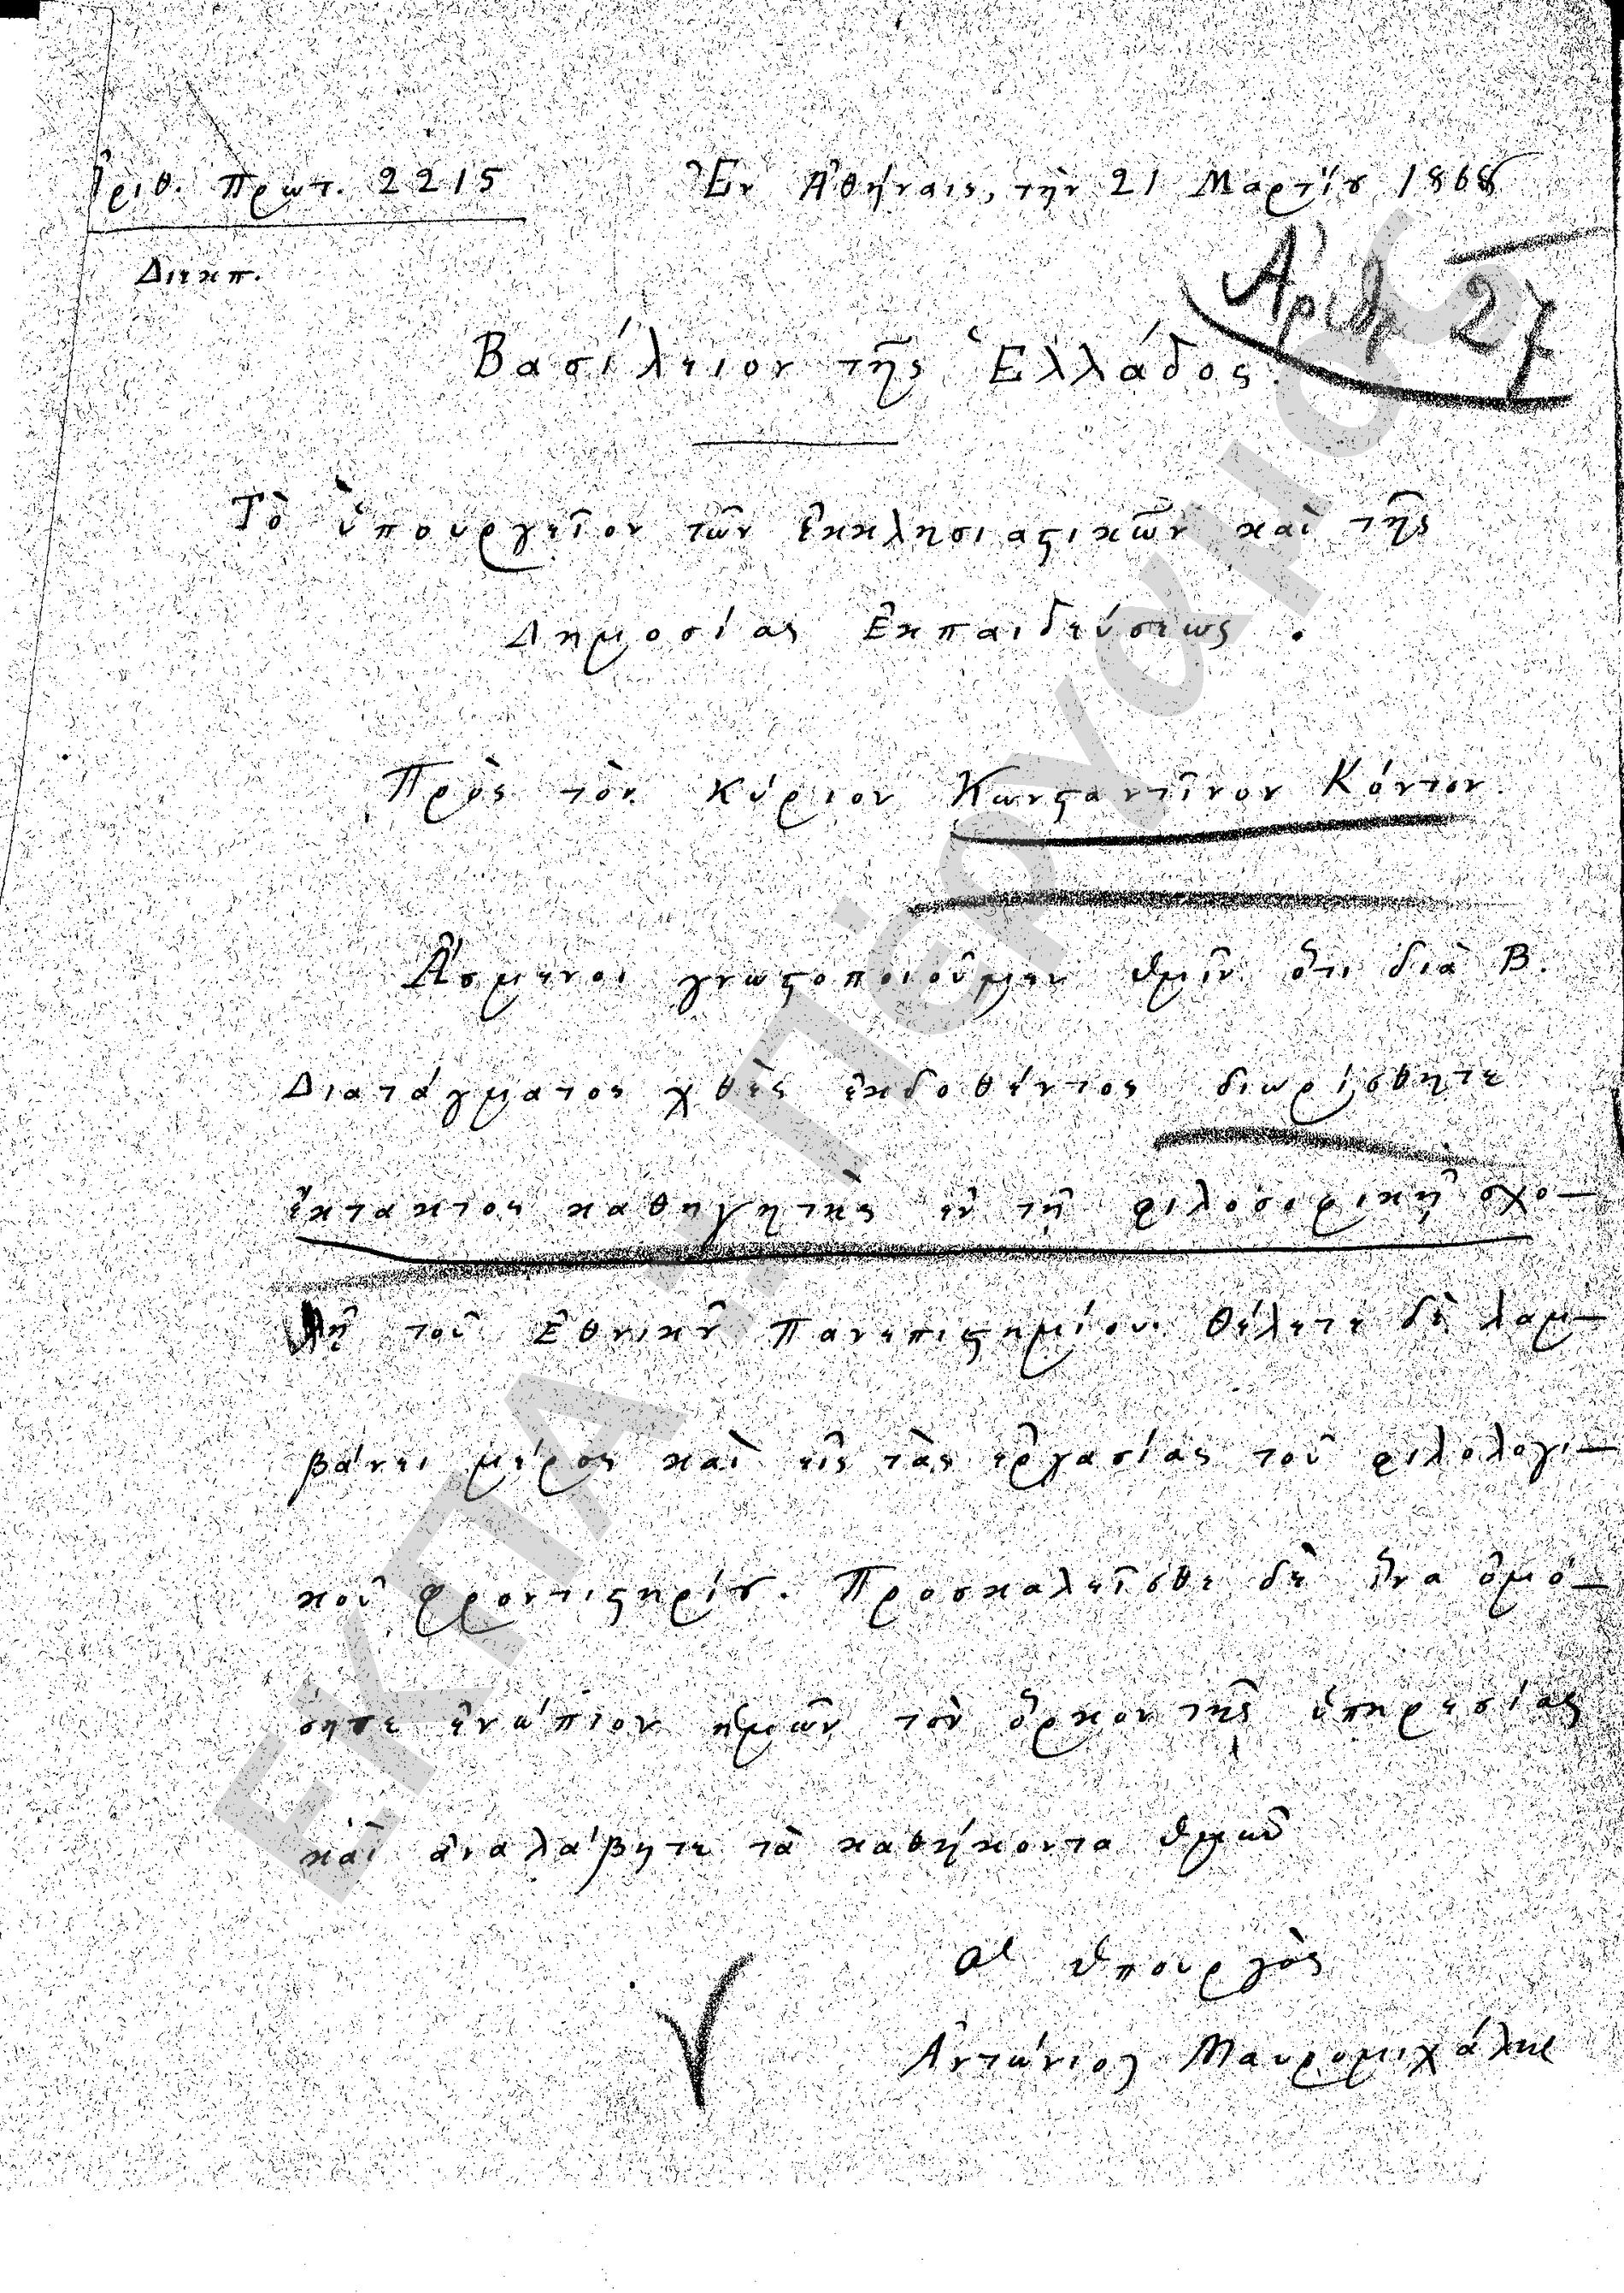 Ἀριθ. Πρωτ. 2215
Ἐν Ἀθήναις, τὴν 21 Μαρτίου 1868
Διεκπ.
Ἀριθ 27
Βασίλειον τῆς Ἑλλάδος.
Τὸ ὑπουργεῖον τῶν Ἐκκλησιαςικῶν καὶ τῆς
Δημοσίας Ἐκπαιδεύσεως.
Πρὸς τὸν Κύριον Κωνςαντῖνον Κόντον.
Ἄσμενοι γνωςοποιοῦμεν ὑμῖν ὅτι διὰ Β.
Διατάγματος χθὲς ἐκδοθέντος διωρίσθητε
ἔκτακτος καθηγητὴς ἐν τῇ φιλοσοφικῇ σχο—
λῇ τοῦ Ἐθνικοῦ Πανεπιςημίου. Θέλετε δὲ λαμ—
βάνει μέρος καὶ εἰς τὰς ἐργασίας τοῦ φιλολογι—
κοῦ φροντιςηρίου. Προσκαλεῖσθε δὲ ἵνα ὀμό—
σητε ἐνώπιον ἡμῶν τὸν ὅρκον τῆς ὑπηρεσίας
καὶ ἀναλάβητε τὰ καθήκοντα ὑμῶν
Ὁ Ὑπουργὸς
Ἀντώνιος Μαυρομιχάλης
ΕΚΠΑ - Πέργαμος